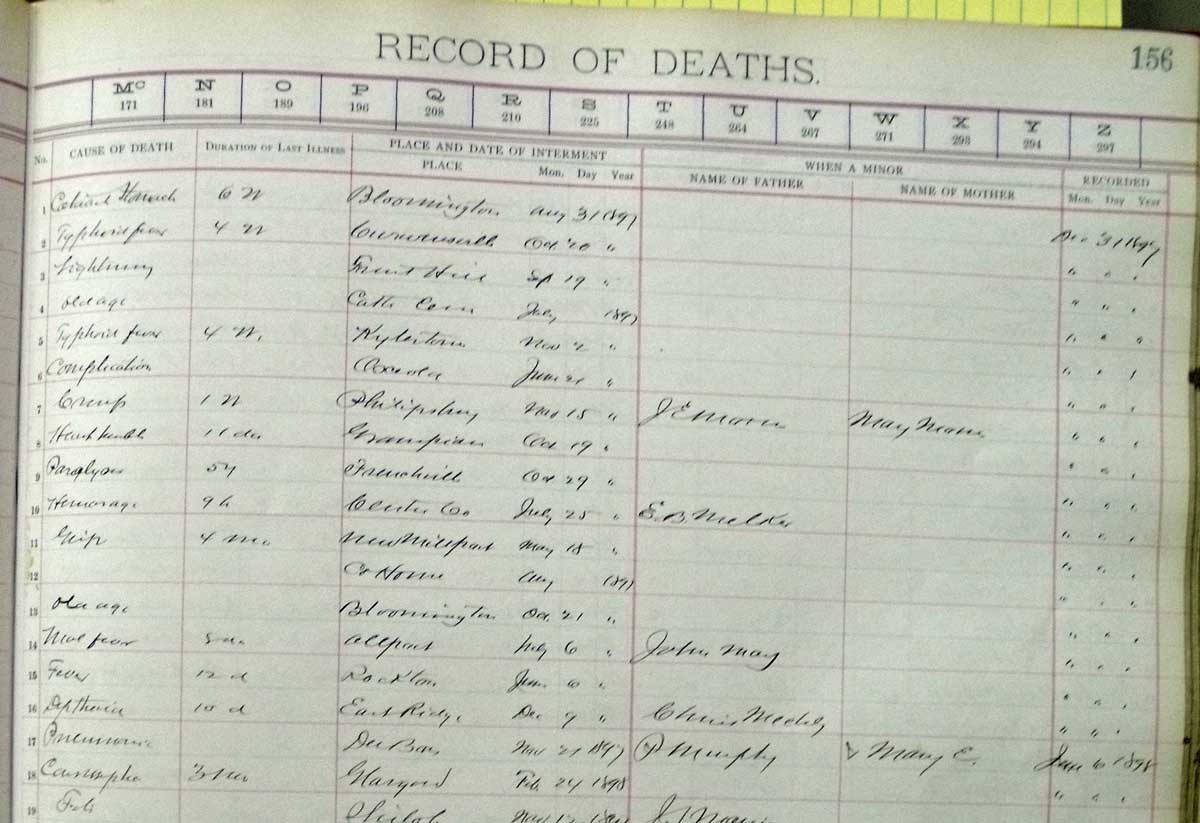 RECORD OF DEATHS.
156
Mc N O P Q R S T U V W X Y Z
171 181 189 196 208 210 225 248 264 267 271 293 294 297
No. CAUSE OF DEATH DURATION OF LAST ILLNESS PLACE AND DATE OF INTERMENT WHEN A MINOR RECORDED
PLACE Mon. Day Year NAME OF FATHER NAME OF MOTHER Mon. Day Year
1 6 W Bloomington Aug 31 1897
2 Typhoid fever 4 W Oct 20 " Dec 31 1897
3 Lightning Sep 19 " " " "
4 old age Cath Cem July 1897 " " "
5 Typhoid fever 4 W. Kylertown Nov 2 " " " "
6 Complication Osceola June " " " "
7 Croup 1 W Philipsburg Nov 15 " J E Moore May Moore " " "
8 11 da Grampian Oct 19 " " " "
9 Paralysis Frenchvill Oct 29 " " " "
10 Hemorage 9 h Center Co July 25 " " " "
11 Grip 4 Mo New Millport May 18 " " " "
12 Co Home Aug 1897 " " "
13 old age Bloomington Oct 21 " " " "
14 fever 5 da Allport July 6 " John May " " "
15 Fever 12 d Rockton June 6 " " " "
16 Deptheria 10 d East Ridge Dec 9 " Chris " " "
17 Pneumonia Du Bois Nov 1897 P Murphy Mary E. 6 1898
18 3 mo Feb 24 1898 " " "
19